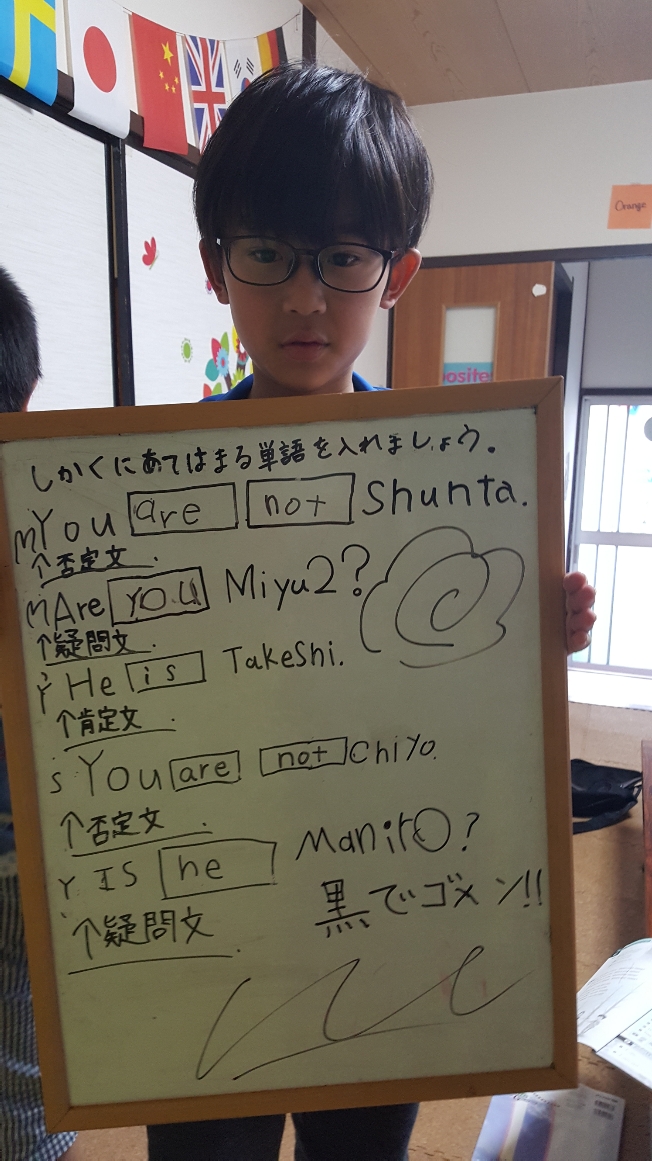 Orange
osite
しかくにあてはまる単語を入れましょう。
m You are not Shunta.
↑否定文.
m Are you Miyu2?
↑疑問文
y He is Takeshi.
↑肯定文.
s You are not Chiyo.
↑否定文.
Y Is he Maniro?
↑疑問文.
黒でゴメン!!